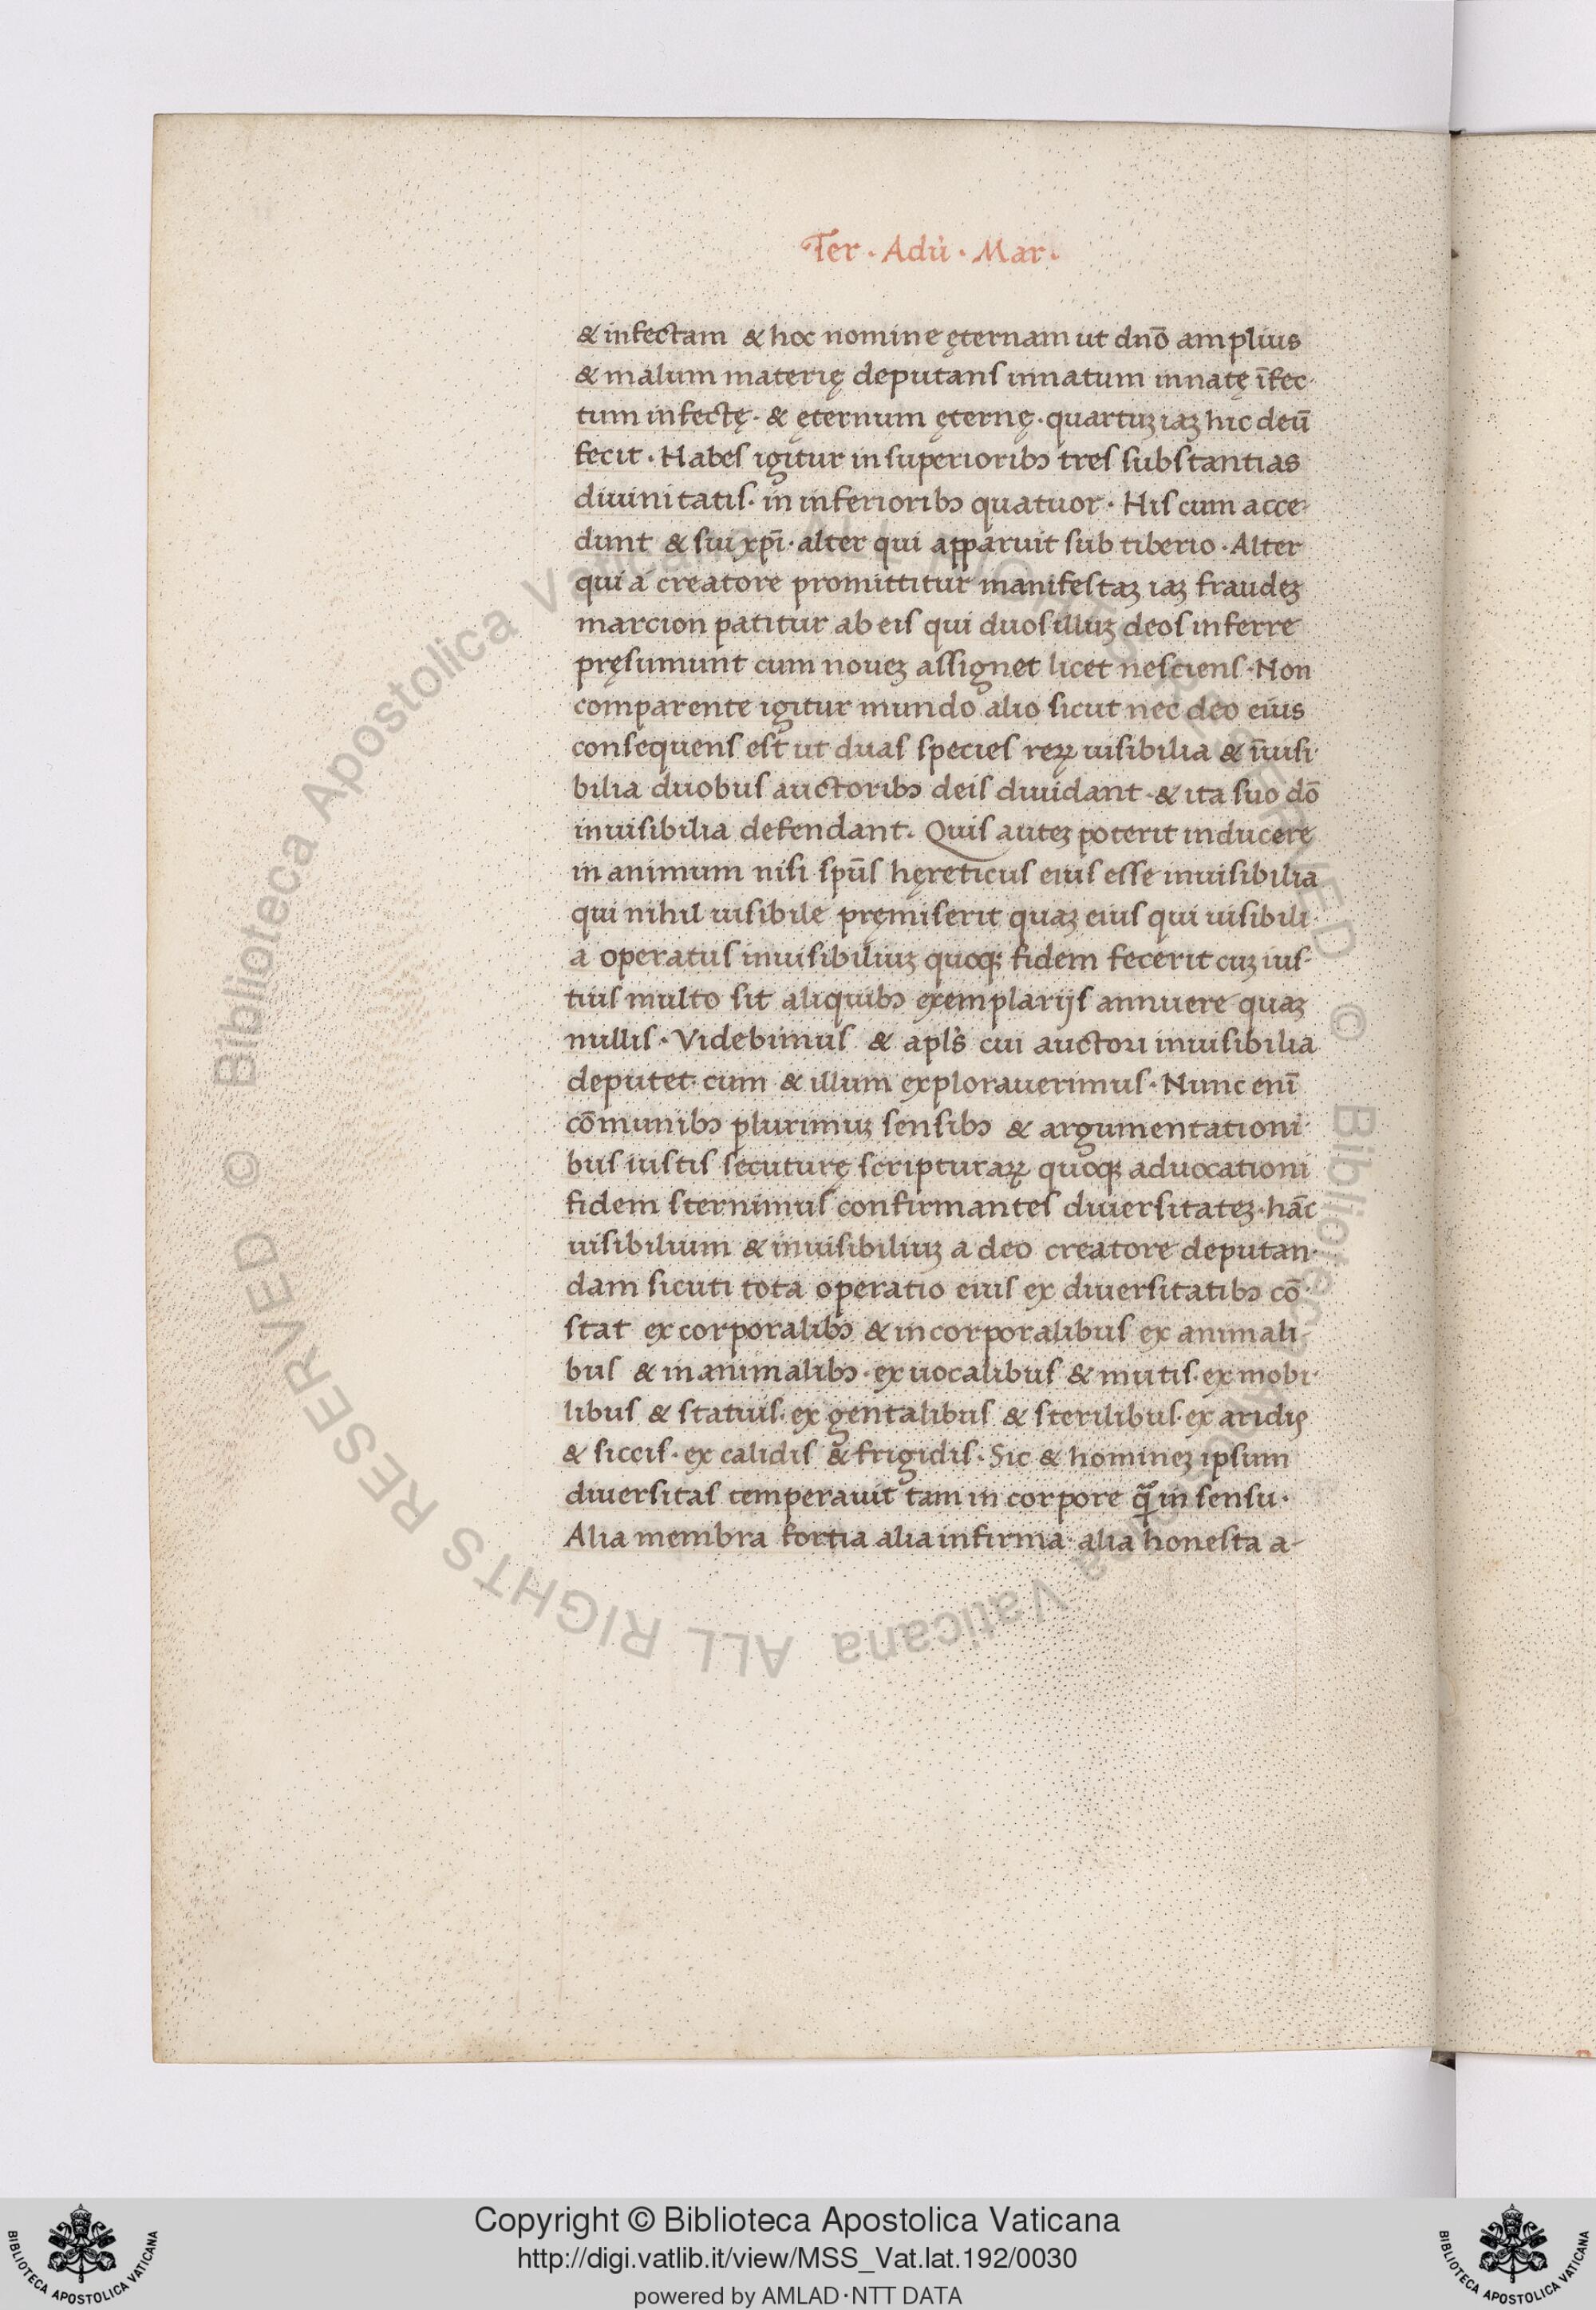 Ter · Adu̇ · Mar ·
& infectam & hoc nomine ęternam ut dnō amplius
& malum materię deputans innatum innatę īfec-
tum infectę · & ęternum ęternę · quartuꝫ iaꝫ hic deū
fecit · Habes igitur in superioribꝰ tres substantias
diuinitatis · in inferioribꝰ quatuor · His cum acce-
dunt & sui xp̄i · alter qui apparuit sub tiberio · Alter
qui a creatore promittitur manifestaꝫ iaꝫ fraudeꝫ
marcion patitur ab eis qui duos illuꝫ deos inferre
pręsumunt cum noueꝫ assignet licet nesciens · Non
comparente igitur mundo alio sicut nec deo eius
consequens est ut duas species reꝝ uisibilia & īuisi-
bilia duobus auctoribꝰ deis diuidant · & ita suo dō
inuisibilia defendant. Quis auteꝫ poterit inducere
in animum nisi spūs hęreticus eius esse inuisibilia
qui nihil uisibile pręmiserit quaꝫ eius qui uisibili-
a operatus inuisibiliuꝫ quoqꝫ fidem fecerit cuꝫ ius-
tius multo sit aliquibꝰ exemplarijs annuere quaꝫ
nullis · Videbimus & apl's cui auctori inuisibilia
deputet · cum & illum explorauerimus · Nunc enī
cōmunibꝰ plurimuꝫ sensibꝰ & argumentationi-
bus iustis secuturę scripturaꝝ quoqꝫ aduocationi
fidem sternimus confirmantes diuersitateꝫ · hāc
uisibilium & inuisibiliuꝫ a deo creatore deputan-
dam sicuti tota operatio eius ex diuersitatibꝰ cō-
stat ex corporalibꝰ & incorporalibus ex animali-
bus & inanimalibꝰ · ex uocalibus & mutis · ex mobi-
libus & statius · ex gentalibus & sterilibus · ex aridis
& siccis · ex calidis & frigidis · Sic & homineꝫ ipsum
diuersitas temperauit tam in corpore q̄ꝫ in sensu ·
Alia membra fortia alia infirma · alia honesta a-
© Biblioteca Apostolica Vaticana ALL RIGHTS RESERVED
Copyright © Biblioteca Apostolica Vaticana
http://digi.vatlib.it/view/MSS_Vat.lat.192/0030
powered by AMLAD·NTT DATA
BIBLIOTECA APOSTOLICA VATICANA
BIBLIOTECA APOSTOLICA VATICANA